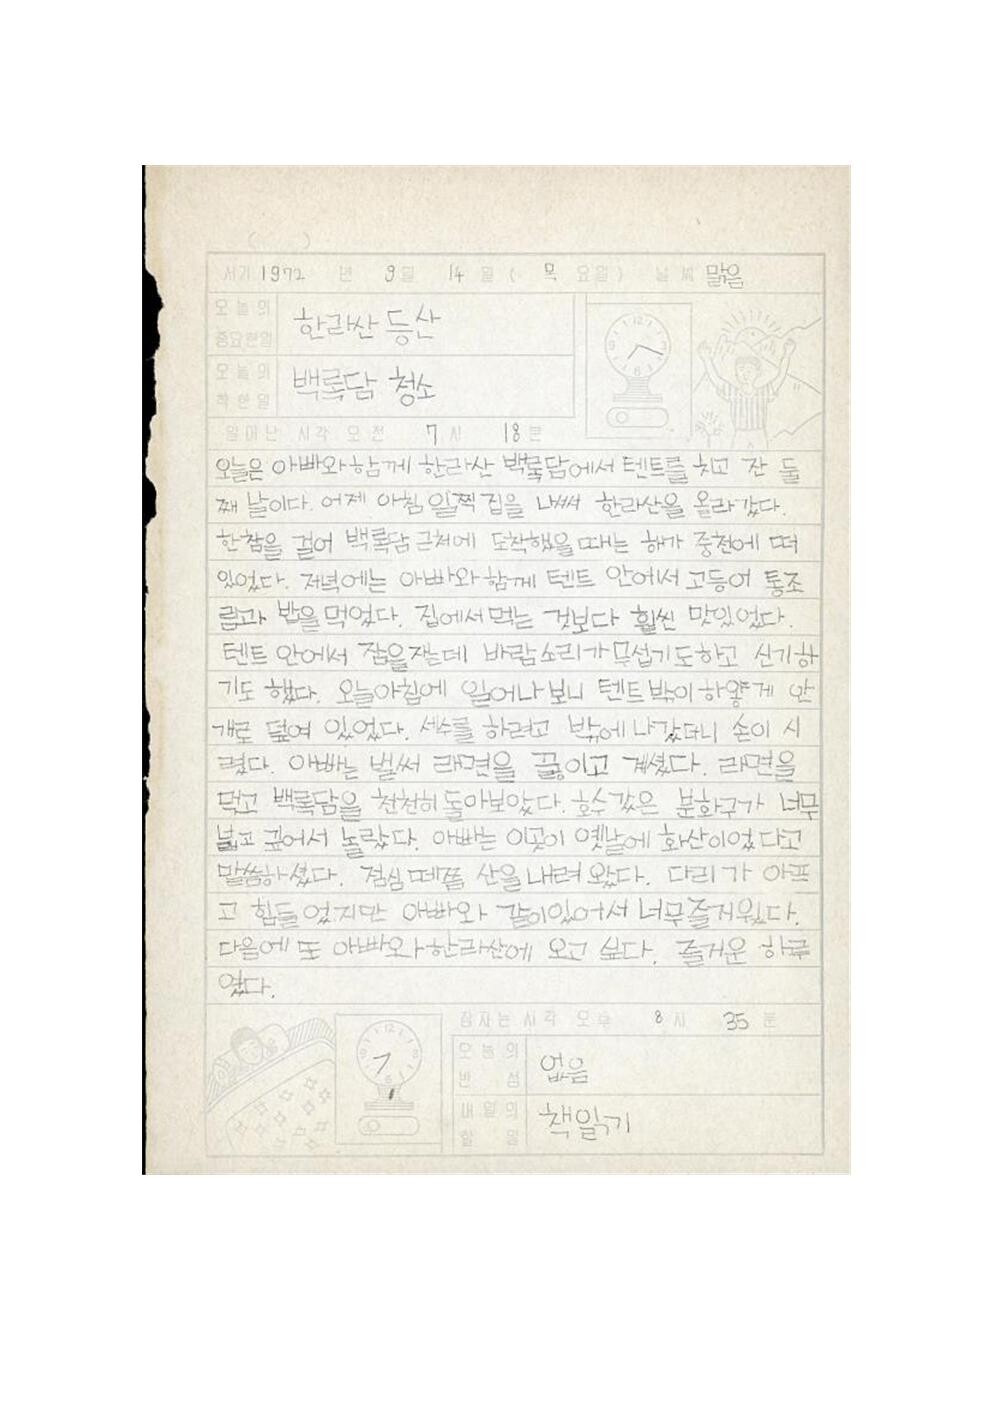 서기 1972 년 9월 14일 ( 목 요일) 날씨 맑음
오늘의 중요한일 한라산 등산
오늘의 착한일 백록담 청소
일어난 시각 오전 7시 18분
오늘은 아빠와 함께 한라산 백록담에서 텐트를 치고 잔 둘
째 날이다. 어제 아침 일찍 집을 나써 한라산을 올라 갔다.
한참을 걸어 백록담 근처에 도착했을 때는 해가 중천에 떠
있었다. 저녁에는 아빠와 함께 텐트 안에서 고등어 통조
림과 밥을 먹었다. 집에서 먹는 것보다 훨씬 맛있었다.
텐트 안에서 잠을 자는데 바람소리가 무섭기도하고 신기하
기도 했다. 오늘아침에 일어나 보니 텐트 밖이 하얗게 안
개로 덮여 있었다. 세수를 하려고 밖에 나갔더니 손이 시
렸다. 아빠는 벌써 라면을 끓이고 계셨다. 라면을
먹고 백록담을 천천히 돌아보았다. 호수 같은 분화구가 너무
넓고 깊어서 놀랐다. 아빠는 이곳이 옛날에 화산이었다고
말씀하셨다. 점심 떼쯤 산을 내려 왔다. 다리가 아프
고 힘들었지만 아빠와 같이있어서 너무 즐거웠다.
다음에 또 아빠와 한라산에 오고 싶다. 즐거운 하루
였다.
잠자는 시각 오후 8시 35분
오늘의 반성 없음
내일의 할일 책읽기